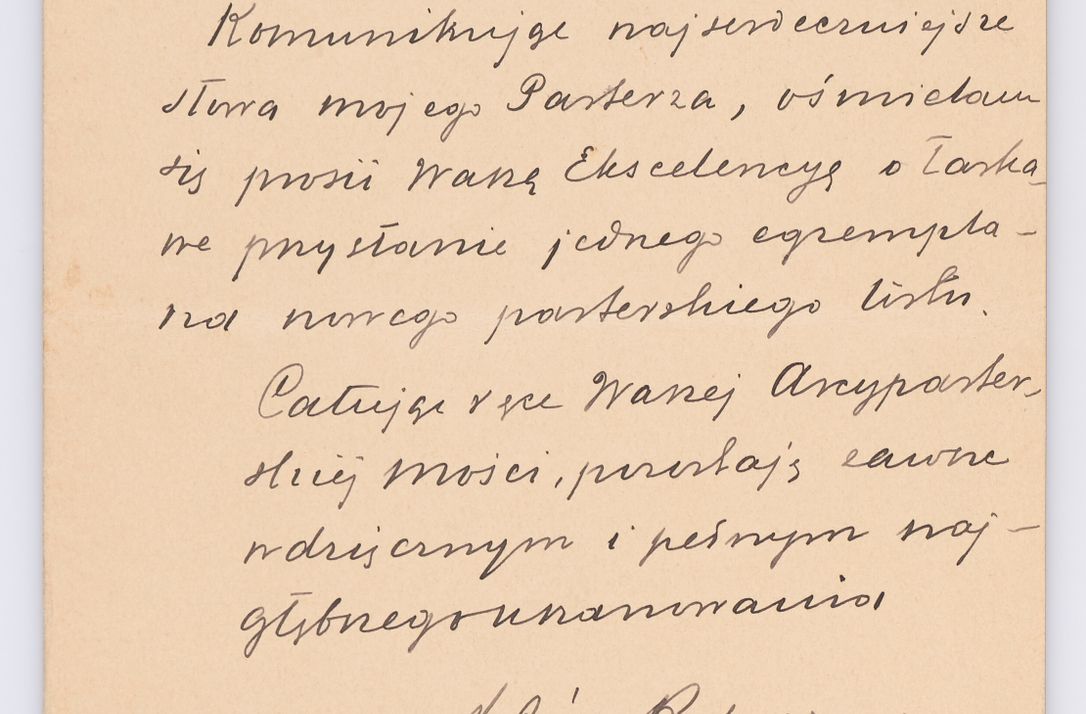 Komunikując najserdeczniejsze
słowa mojego Pasterza, ośmielam
się prosić Waszą Ekscelencyę o łaska-
we przysłanie jednego egzempla-
rza nowego pasterskiego listu.
Całując ręce Waszej Arcypaster-
skiej Mości, pozostaję zawsze
wdzięcznym i pełnym naj-
głębszego uszanowania